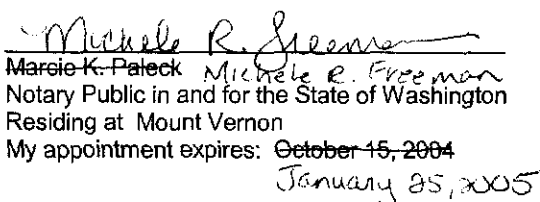 Michele R. Freeman
Marcie K. Paleck Michele R. Freeman
Notary Public in and for the State of Washington
Residing at Mount Vernon
My appointment expires: October 15, 2004
January 25, 2005